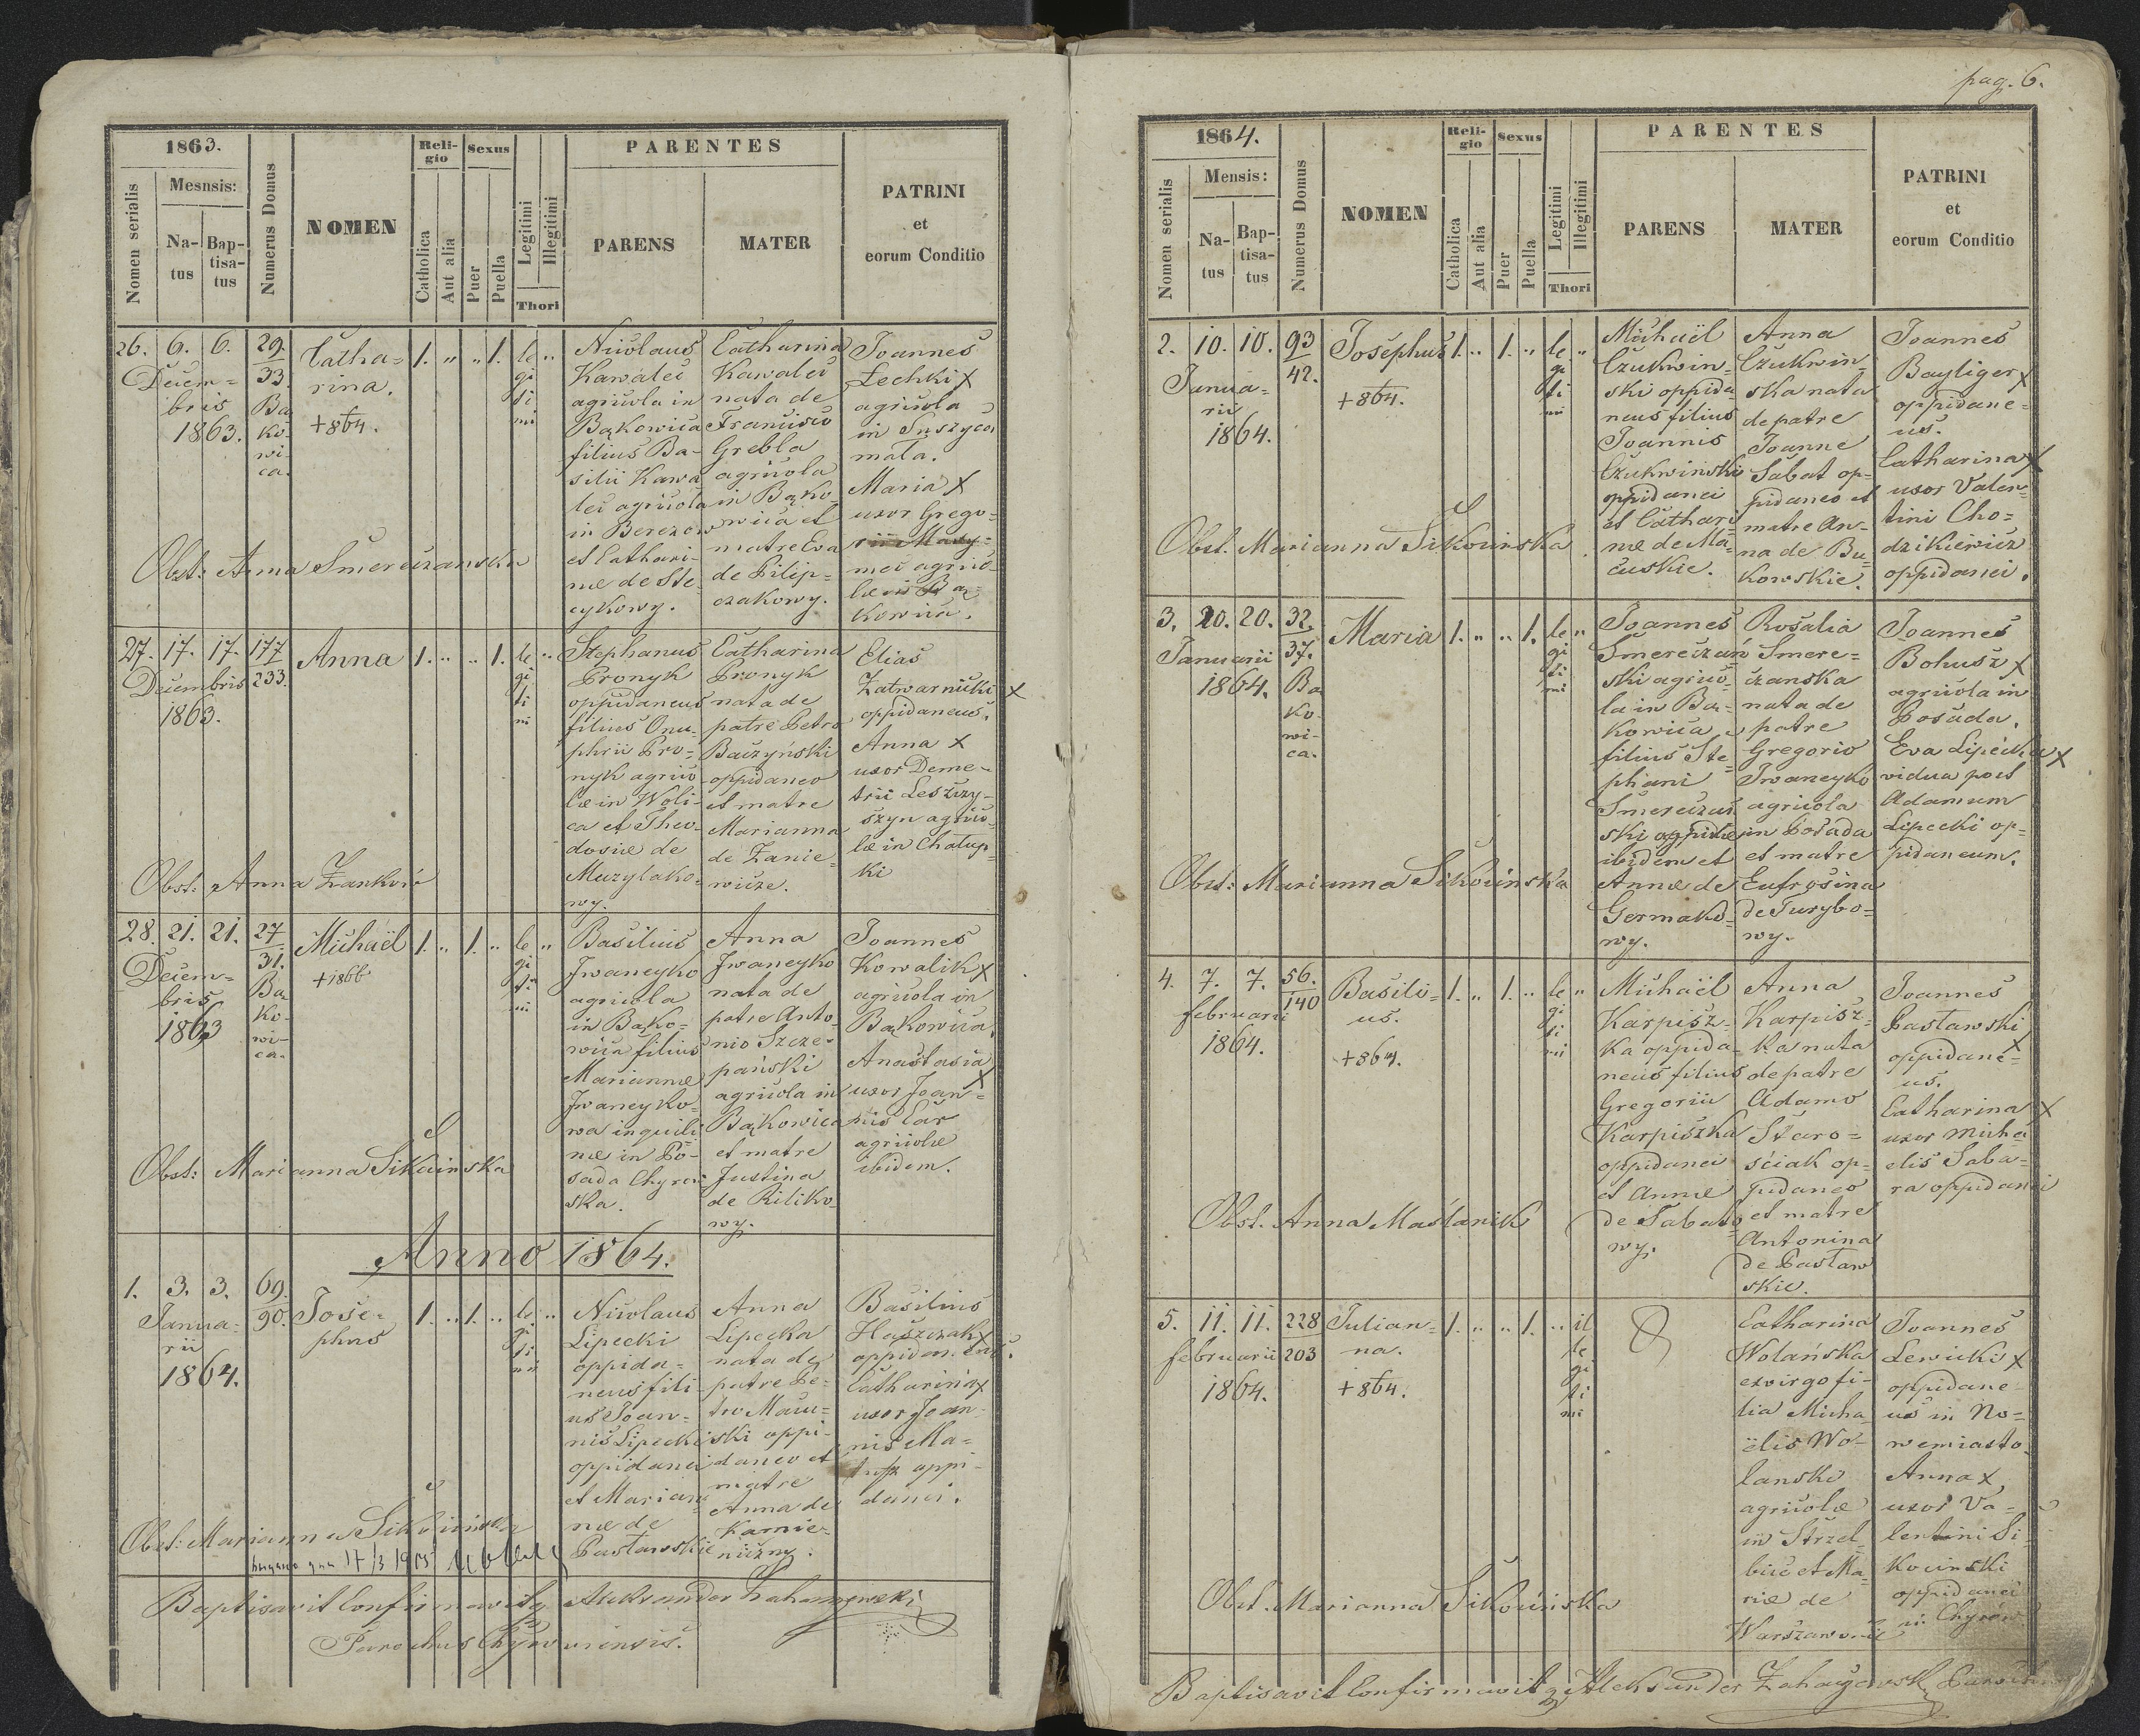 1863.
Mesnsis:
Nomen serialis
Na-
tus
Bap-
tisa-
tus
Numerus Domus
NOMEN
Reli-
gio
Catholica
Aut alia
Sexus
Puer
Puella
Legitimi
Illegitimi
Thori
PARENTES
PARENS
MATER
PATRINI
et
eorum Conditio
26. 6. 6.
Decem=
bris
1863.
29.
33.
Bą
ko-
wi-
ca.
Catha=
rina.
+864.
1. " " 1.
le "
gi
ti
mi
Nicolaus
Kawaleć
agricola in
Bąkowica
filius Ba-
silii Kawa
leć agricola
in Berezow
et Cathari-
næ de Ste
cykowy.
Catharina
Kawaleć
nata de
Francisco
Grebla
agricola
in Bąko-
wica et
matre Eva
de Pilip=
czakowy.
Joannes
Lechki x
agricola
in
mata.
Maria x
uxor Grego=
rii
agrico-
læ in Bą=
kowica.
Obst: Anna Smereczanska
27. 17. 17.
Decembris
1863.
177
233.
Anna
1. " " 1.
le "
gi
ti
mi
Stephanus
Pronyk
oppidaneus
filius Onu-
phrii Pro-
nyk agrico
læ in Woli-
ca et Theo-
dosiæ de
Muzylako-
wy.
Catharina
Pronyk
nata de
patre Petro
Baczyński
oppidaneo
et matre
Marianna
de Zanie=
wicze.
Elias
Zatwarnicki x
oppidaneus.
Anna x
uxor Deme-
trii Leszczy-
szyn agrico-
læ in Chatup
ki
Obst: Anna Zankovic
28. 21. 21.
Decem=
bris
1863
27
31.
Bą
ko-
wi-
ca.
Michaël
+1866
1. " 1. "
le "
gi
ti
mi
Basilius
Iwaneyko
agricola
in Bąko=
wica filius
Mariannæ
Iwaneyko-
wa inquili
næ in Po-
sada Chyrow
ska.
Anna
Iwaneyko
nata de
patre Anto-
nio Szcze-
pański
agricola in
Bąkowica
et matre
Justina
de Riliko-
wy.
Joannes
Kowalik x
agricola in
Bąkowica.
Anastasia
x
uxor Joan=
nis Car
agricolæ
ibidem.
Obst: Marianna Sikocinska
Anno 1864.
1. 3. 3.
Janua-
rii
1864.
69.
90.
Jose-
phus
1. " 1. "
le "
gi
ti
mi
Nicolaus
Lipecki
oppida=
neus fili-
us Joan=
nis Lipecki
oppidanei
et Marian
næ de
Pastawskie
Anna
Lipecka
nata de
patre Pe-
tro
ski oppi-
daneo et
matre
Anna de
Kamie-
niczny.
Basilius
Haszczak x
oppidaneus.
Catharina x
uxor Joan-
nis Ma=
oppi-
danei.
Obst: Marianna Sikocinska
17/3 1905
Baptisavit Confirmavitq Aleksander Zahayewski
Parochus Chyroviensis.
pag. 6.
1864.
Mensis:
Nomen serialis
Na-
tus
Bap-
tisa-
tus
Numerus Domus
NOMEN
Reli-
gio
Catholica
Aut alia
Sexus
Puer
Puella
Legitimi
Illegitimi
Thori
PARENTES
PARENS
MATER
PATRINI
et
eorum Conditio
2. 10. 10.
Janua-
rii
1864.
93
42.
Josephus
+864.
1. " 1. "
le "
gi
ti
mi
Michaël
Czukwin-
ski oppida-
neus filius
Joannis
Czukwinski
oppidanei
et Cathari
næ de Ma-
cuskie.
Anna
Czukwin-
ska nata
de patre
Joanne
Sabat op-
pidaneo et
matre An-
na de Bu
kowskie.
Joannes
Bayliger x
oppidane=
us.
Catharina x
uxor Valen-
tini Cho=
dzikiewicz
oppidanei.
Obst. Marianna Sikocinska
3. 20. 20.
Januarii
1864.
32.
37.
Bą
ko-
wi-
ca.
Maria
1. " " 1.
le "
gi
ti
mi
Joannes
Smereczań
ski agrico-
la in Bą-
kowica
filius Ste
phani
Smereczań
ski agricolæ
ibidem et
Annæ de
Germako-
wy.
Rosalia
Smere=
czanska
nata de
patre
Gregorio
Iwaneyko
agricola
in Posada
et matre
Eufrosina
de Turybo=
wy.
Joannes
Bohusz x
agricola in
Posada.
Eva Lipecka x
vidua post
Adamum
Lipecki op=
pidaneum.
Obst: Marianna Sikocinska
4. 7. 7.
februarii
1864.
56.
140
Basili=
us.
+864.
1. " 1. "
le "
gi
ti
mi
Michaël
Karpisz-
ka oppida-
neus filius
Gregorii
Karpiszka
oppidanei
et Annæ
de Sabato
wy.
Anna
Karpisz-
ka nata
de patre
Adamo
Staro=
ściak op=
pidaneo
et matre
Antonina
de Pastaw
skie.
Joannes
Pastawski
x
oppidane=
us.
Catharina x
uxor Micha
elis Saba-
ra oppidanei
Obst. Anna Maślanik
5. 11. 11.
februarii
1864.
228
203
Julian=
na.
+864.
1. " " 1.
" il
le
gi
ti
mi
Catharina
Wolańska
exvirgo fi-
lia Micha
ëlis Wo-
lanski
agricolæ
in Strzel
bice et Ma-
riæ de
Joannes
Lewicki x
oppidane-
us in No=
wemiasto.
Anna x
uxor Va-
lentini Si-
kocinski
oppidanei
in Chyrów
Obst. Marianna Sikocinska
Baptisavit Confirmavitq Aleksander Zahayewski